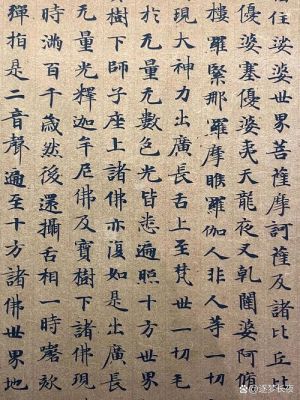 住娑婆世界菩薩摩訶薩及諸比丘比
優婆塞優婆夷天龍夜叉乹闥婆阿脩
樓羅緊那羅摩睺羅伽人非人等一切
現大神力出廣長舌上至梵世一切毛
於无量无數色光皆悉遍照十方世界
樹下師子座上諸佛亦復如是出廣長
无量光釋迦牟尼佛及寶樹下諸佛現
時滿百千歲然後還攝舌相一時謦欬
彈指是二音聲遍至十方諸佛世界地